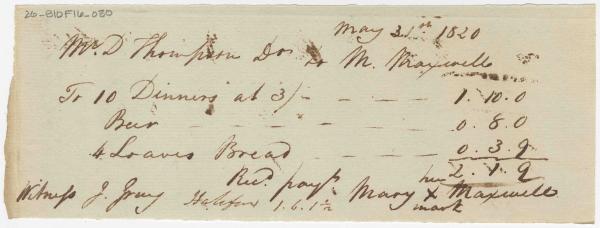 26-BIDF16-080
May 31st 1820
Mr. D Thompson Dr. to M. Maxwell
To 10 Dinners at 3/- — — — 1.10.0
Beer — — — — — 0.8.0
4 Loaves Bread — — — 0.3.9
2.1.9
Recd. payt. Mary her X mark Maxwell
Witness J. Gray Halifax 1.6.1½